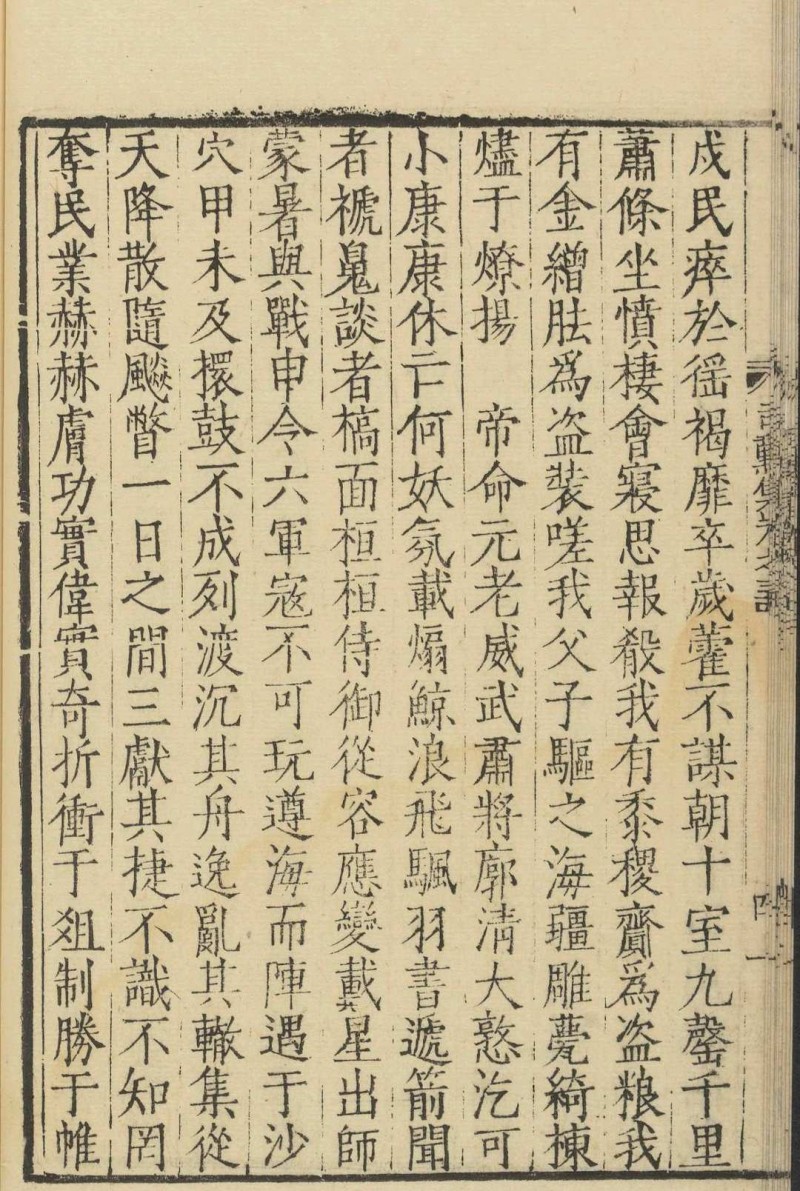 戍民瘁於徭褐靡卒歲藿不謀朝十室九罄千里
蕭條坐憤棲會寢思報殺我有黍稷齎爲盜粮我
有金繒胠爲盜裝嗟我父子驅之海疆雕甍綺棟
燼于燎揚　帝命元老威武肅將廓清大憝汔可
小康康休亡何妖氛載煽鯨浪飛颿羽書遞箭聞
者褫䰟談者槁面桓桓侍御從容應變戴星出師
蒙暑與戰申令六軍寇不可玩遵海而陣遇于沙
穴甲未及擐鼓不成列渡沉其舟逸亂其轍集從
天降散隨飈瞥一日之間三獻其捷不識不知罔
奪民業赫赫膚功實偉實奇折衝于俎制勝于帷